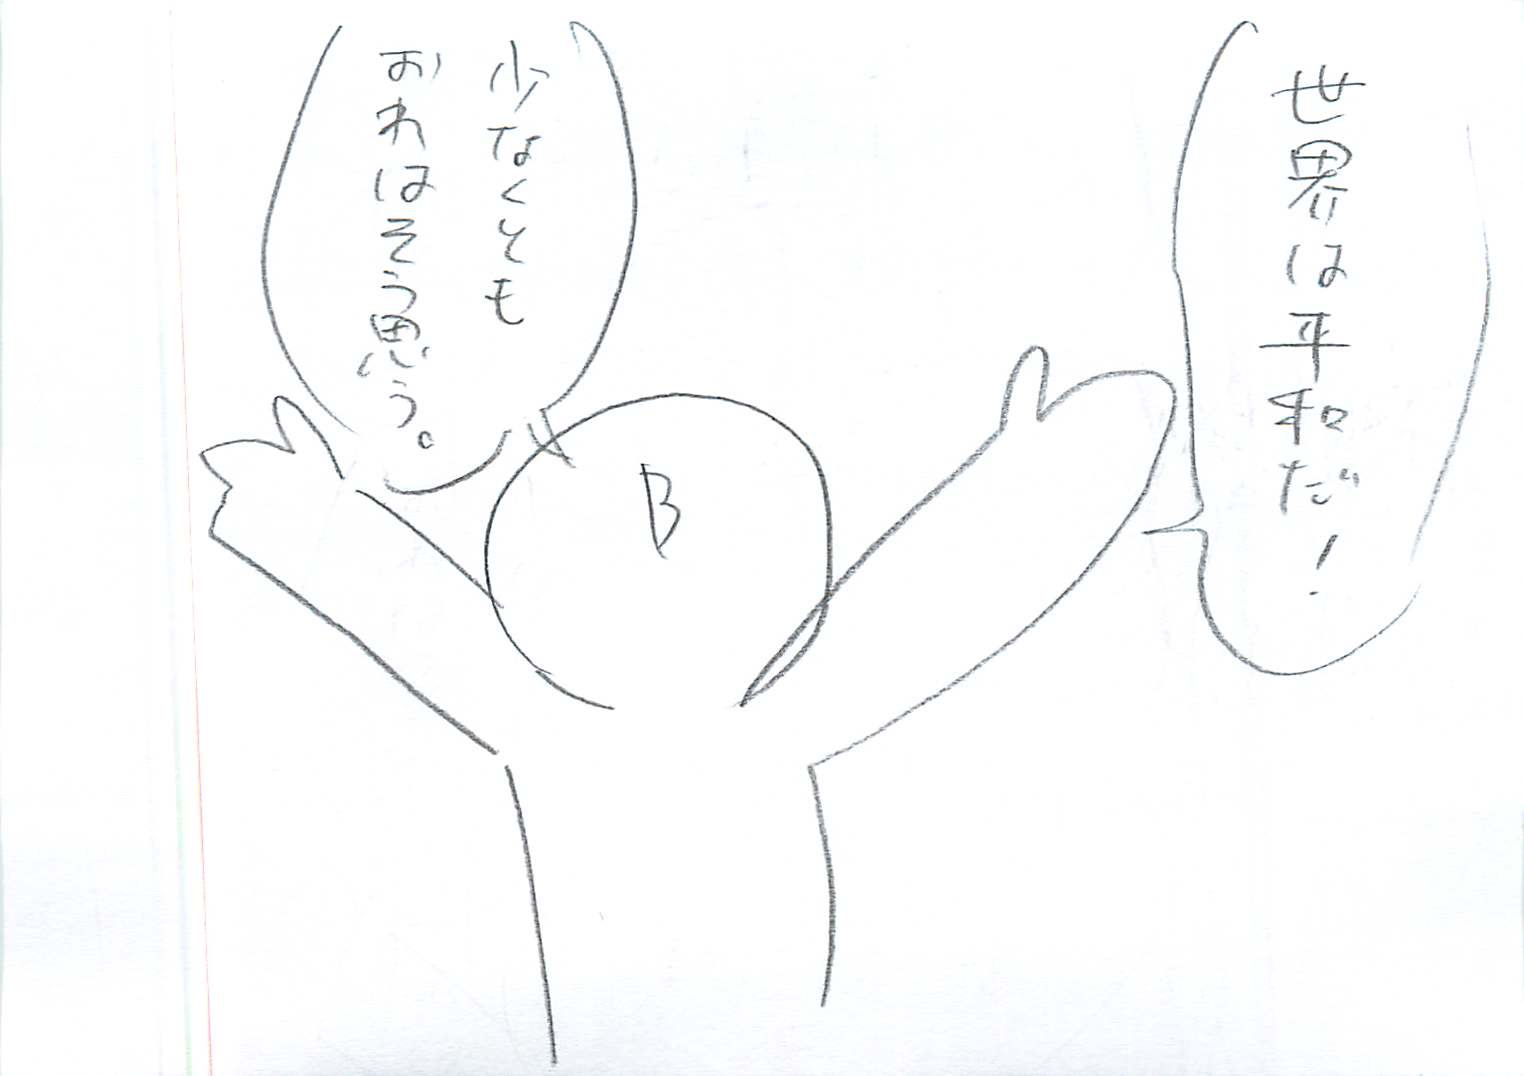 世界は平和だ!
少なくとも
おれはそう思う。
B